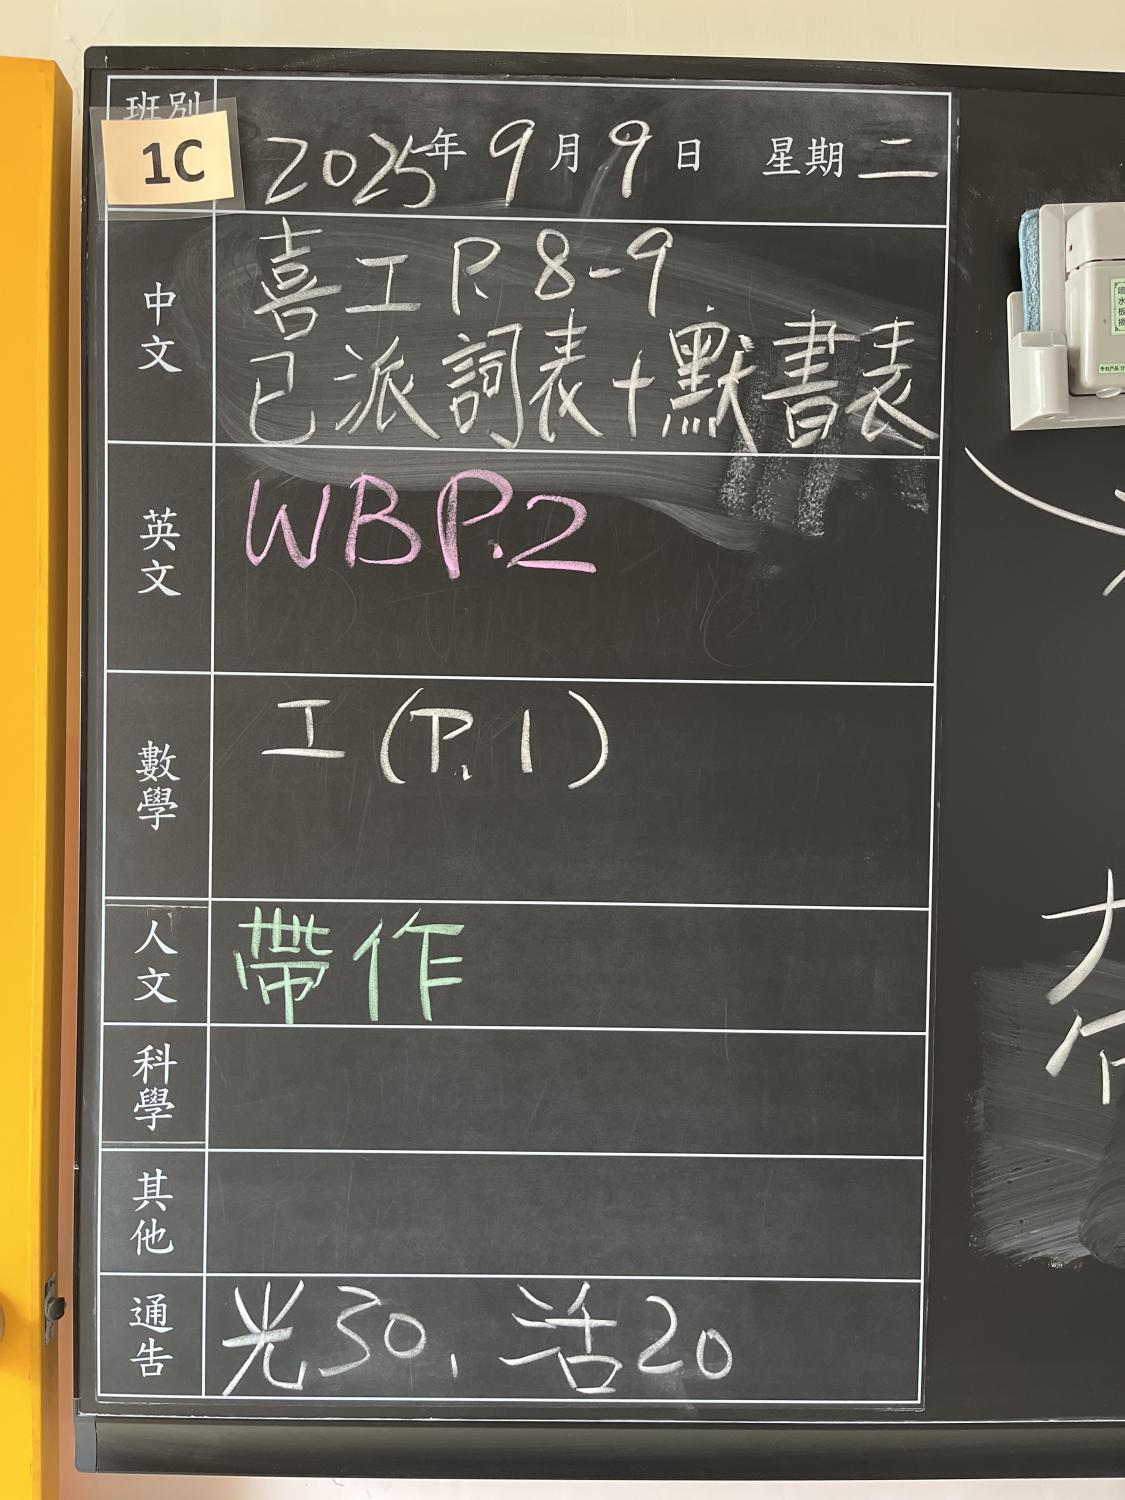 班別
1C
2025年9月9日 星期二
中文
喜工 P. 8-9
已派詞表+默書表
英文
WB P.2
數學
工 (P. 1)
人文
帶作
科學
其他
通告
光30, 活20